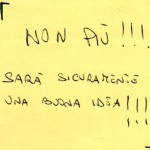 NON PIÙ!!!!
SARÀ SICURAMENTE
UNA BUONA IDEA!!!